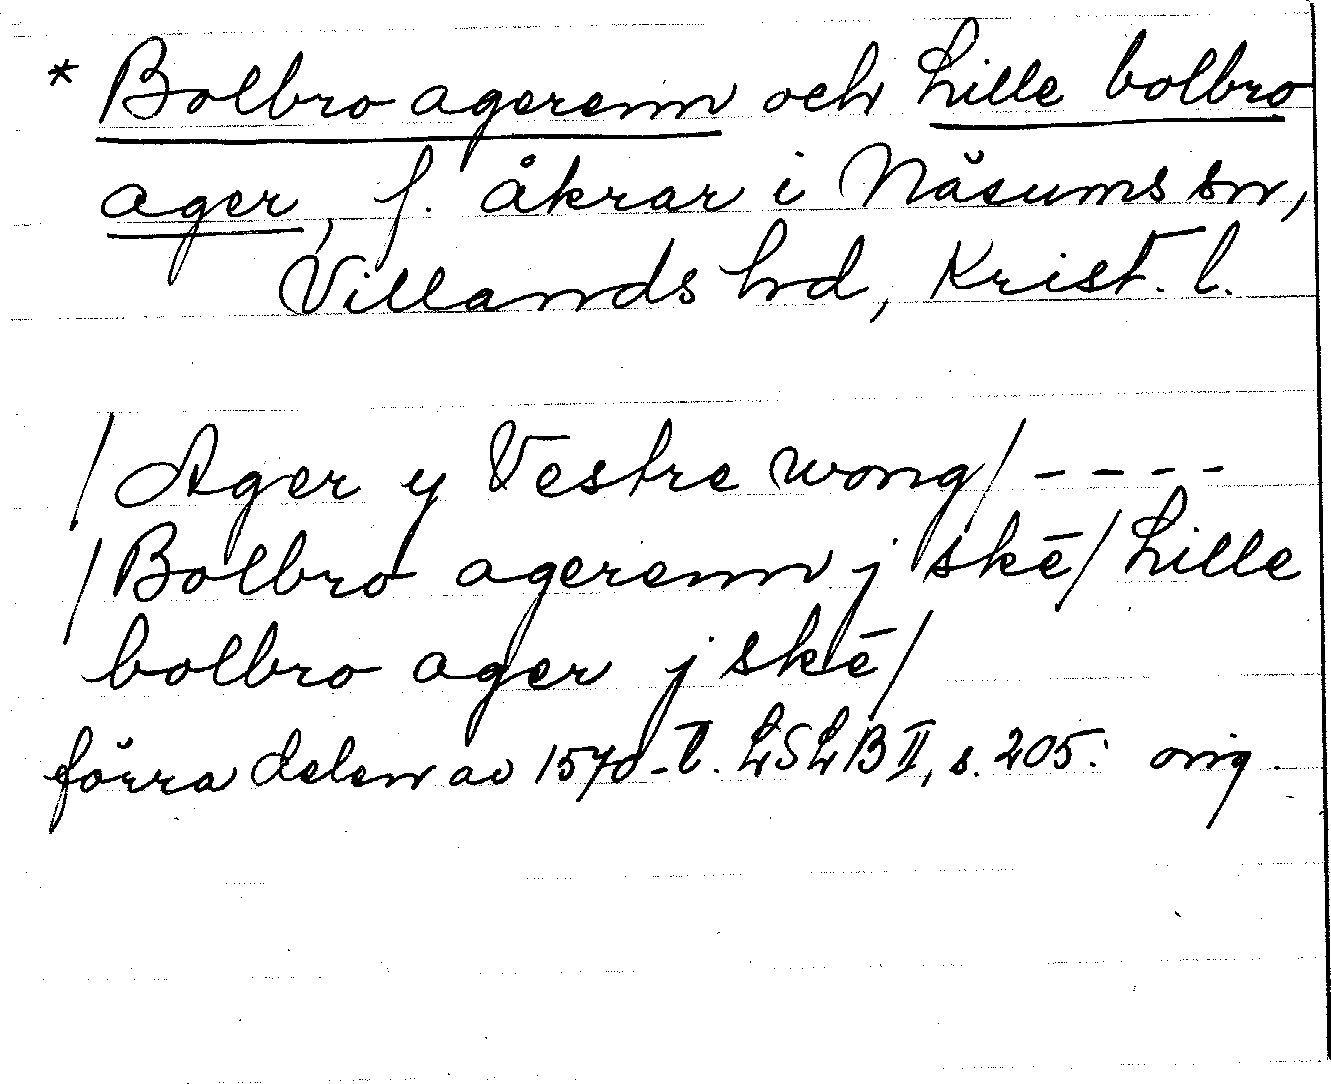 * Bolbro agerenn och Lille bolbro
ager, f. åkrar i Näsums sn,
Villands hd, Krist. l.
/Ager y Vestre wong/ - - - -
/Bolbro agerenn j skē/ Lille
bolbro ager j skē/
förra delen av 1570-t. LSLB II, s. 205: orig.